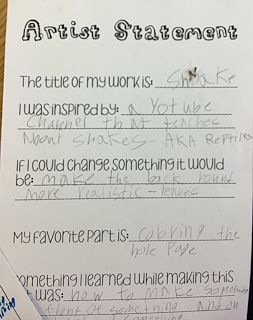 Artist Statement
The title of my work is: Snake
I was inspired by: a Yotube
Channel that teaches
About snakes - AKA Reptiles
If I could change something it would
be: make the back round
more realistic - leaves
My favorite part is: coloring the
hole page
omething I learned while making this
was: how to make something
front of something and on